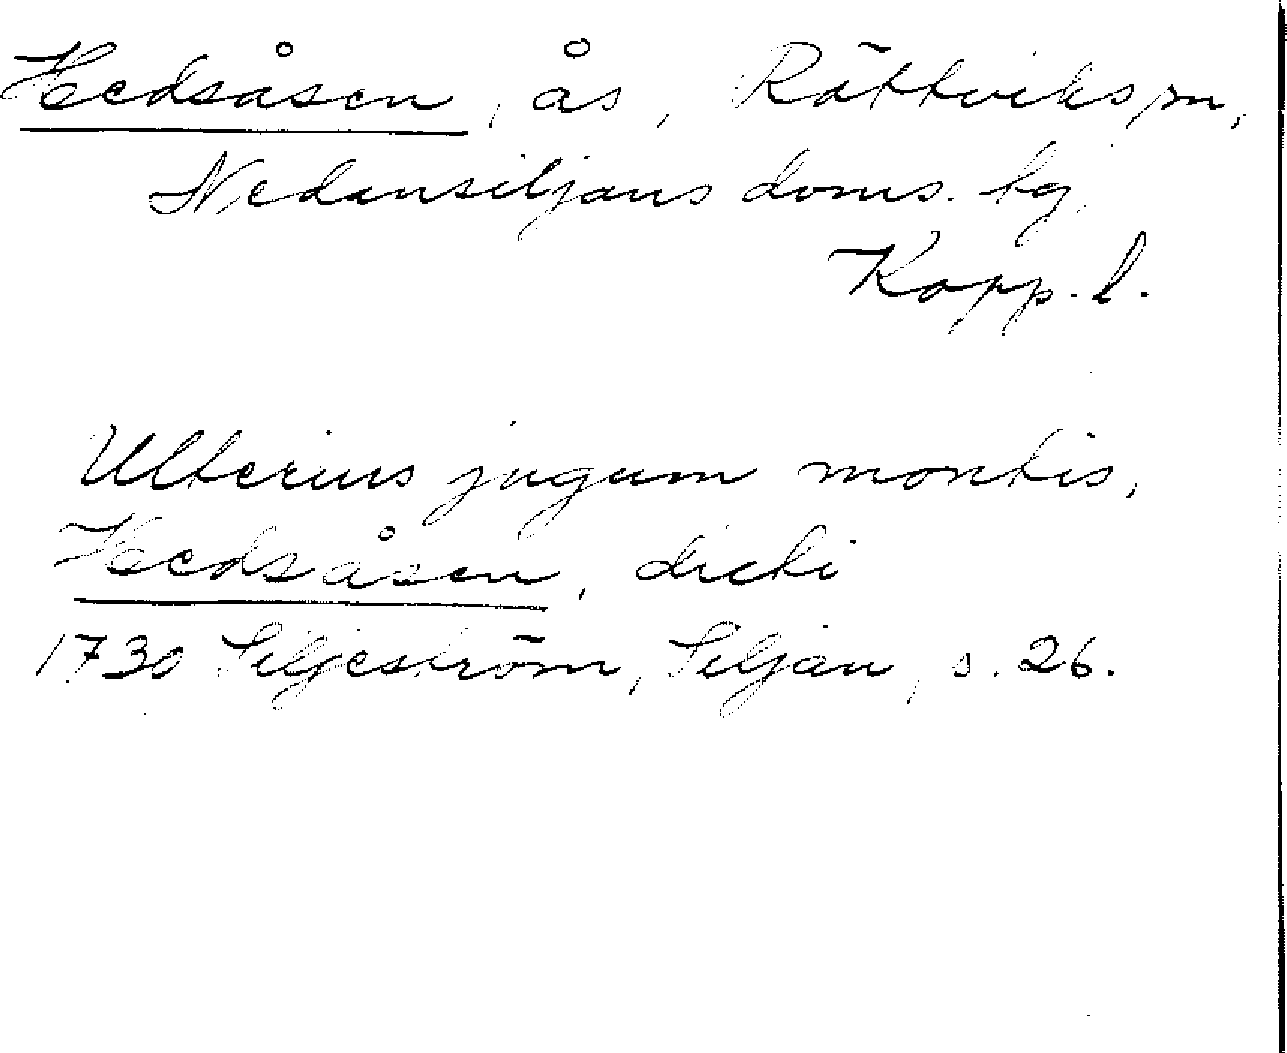 Hedsåsen, ås, Rättviks sn,
Nedansiljans doms. hg.
Kopp. l.
Ulterius jugum montis,
Hedsåsen, dicti
1730 Siljeström, Siljan, s. 26.